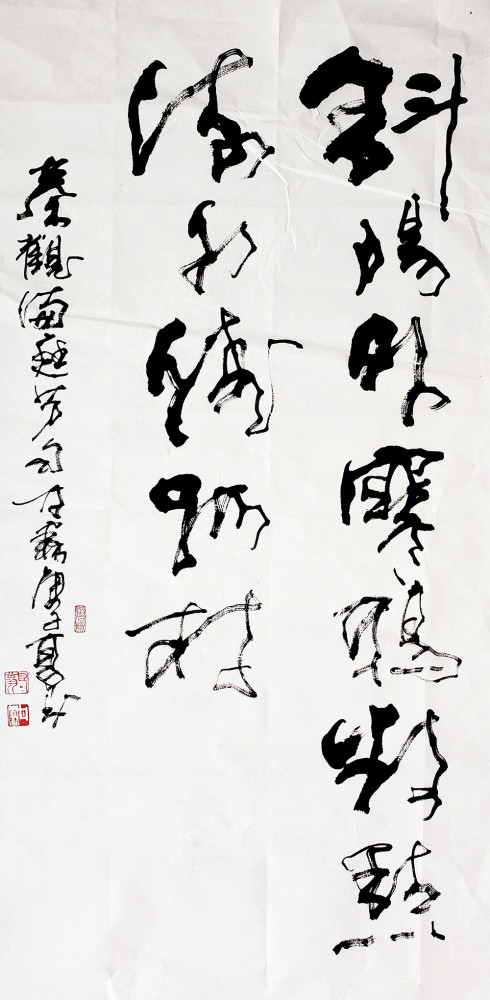 斜陽外寒鴉數點
流水繞孤村
秦觀滿庭芳句庚子夏書